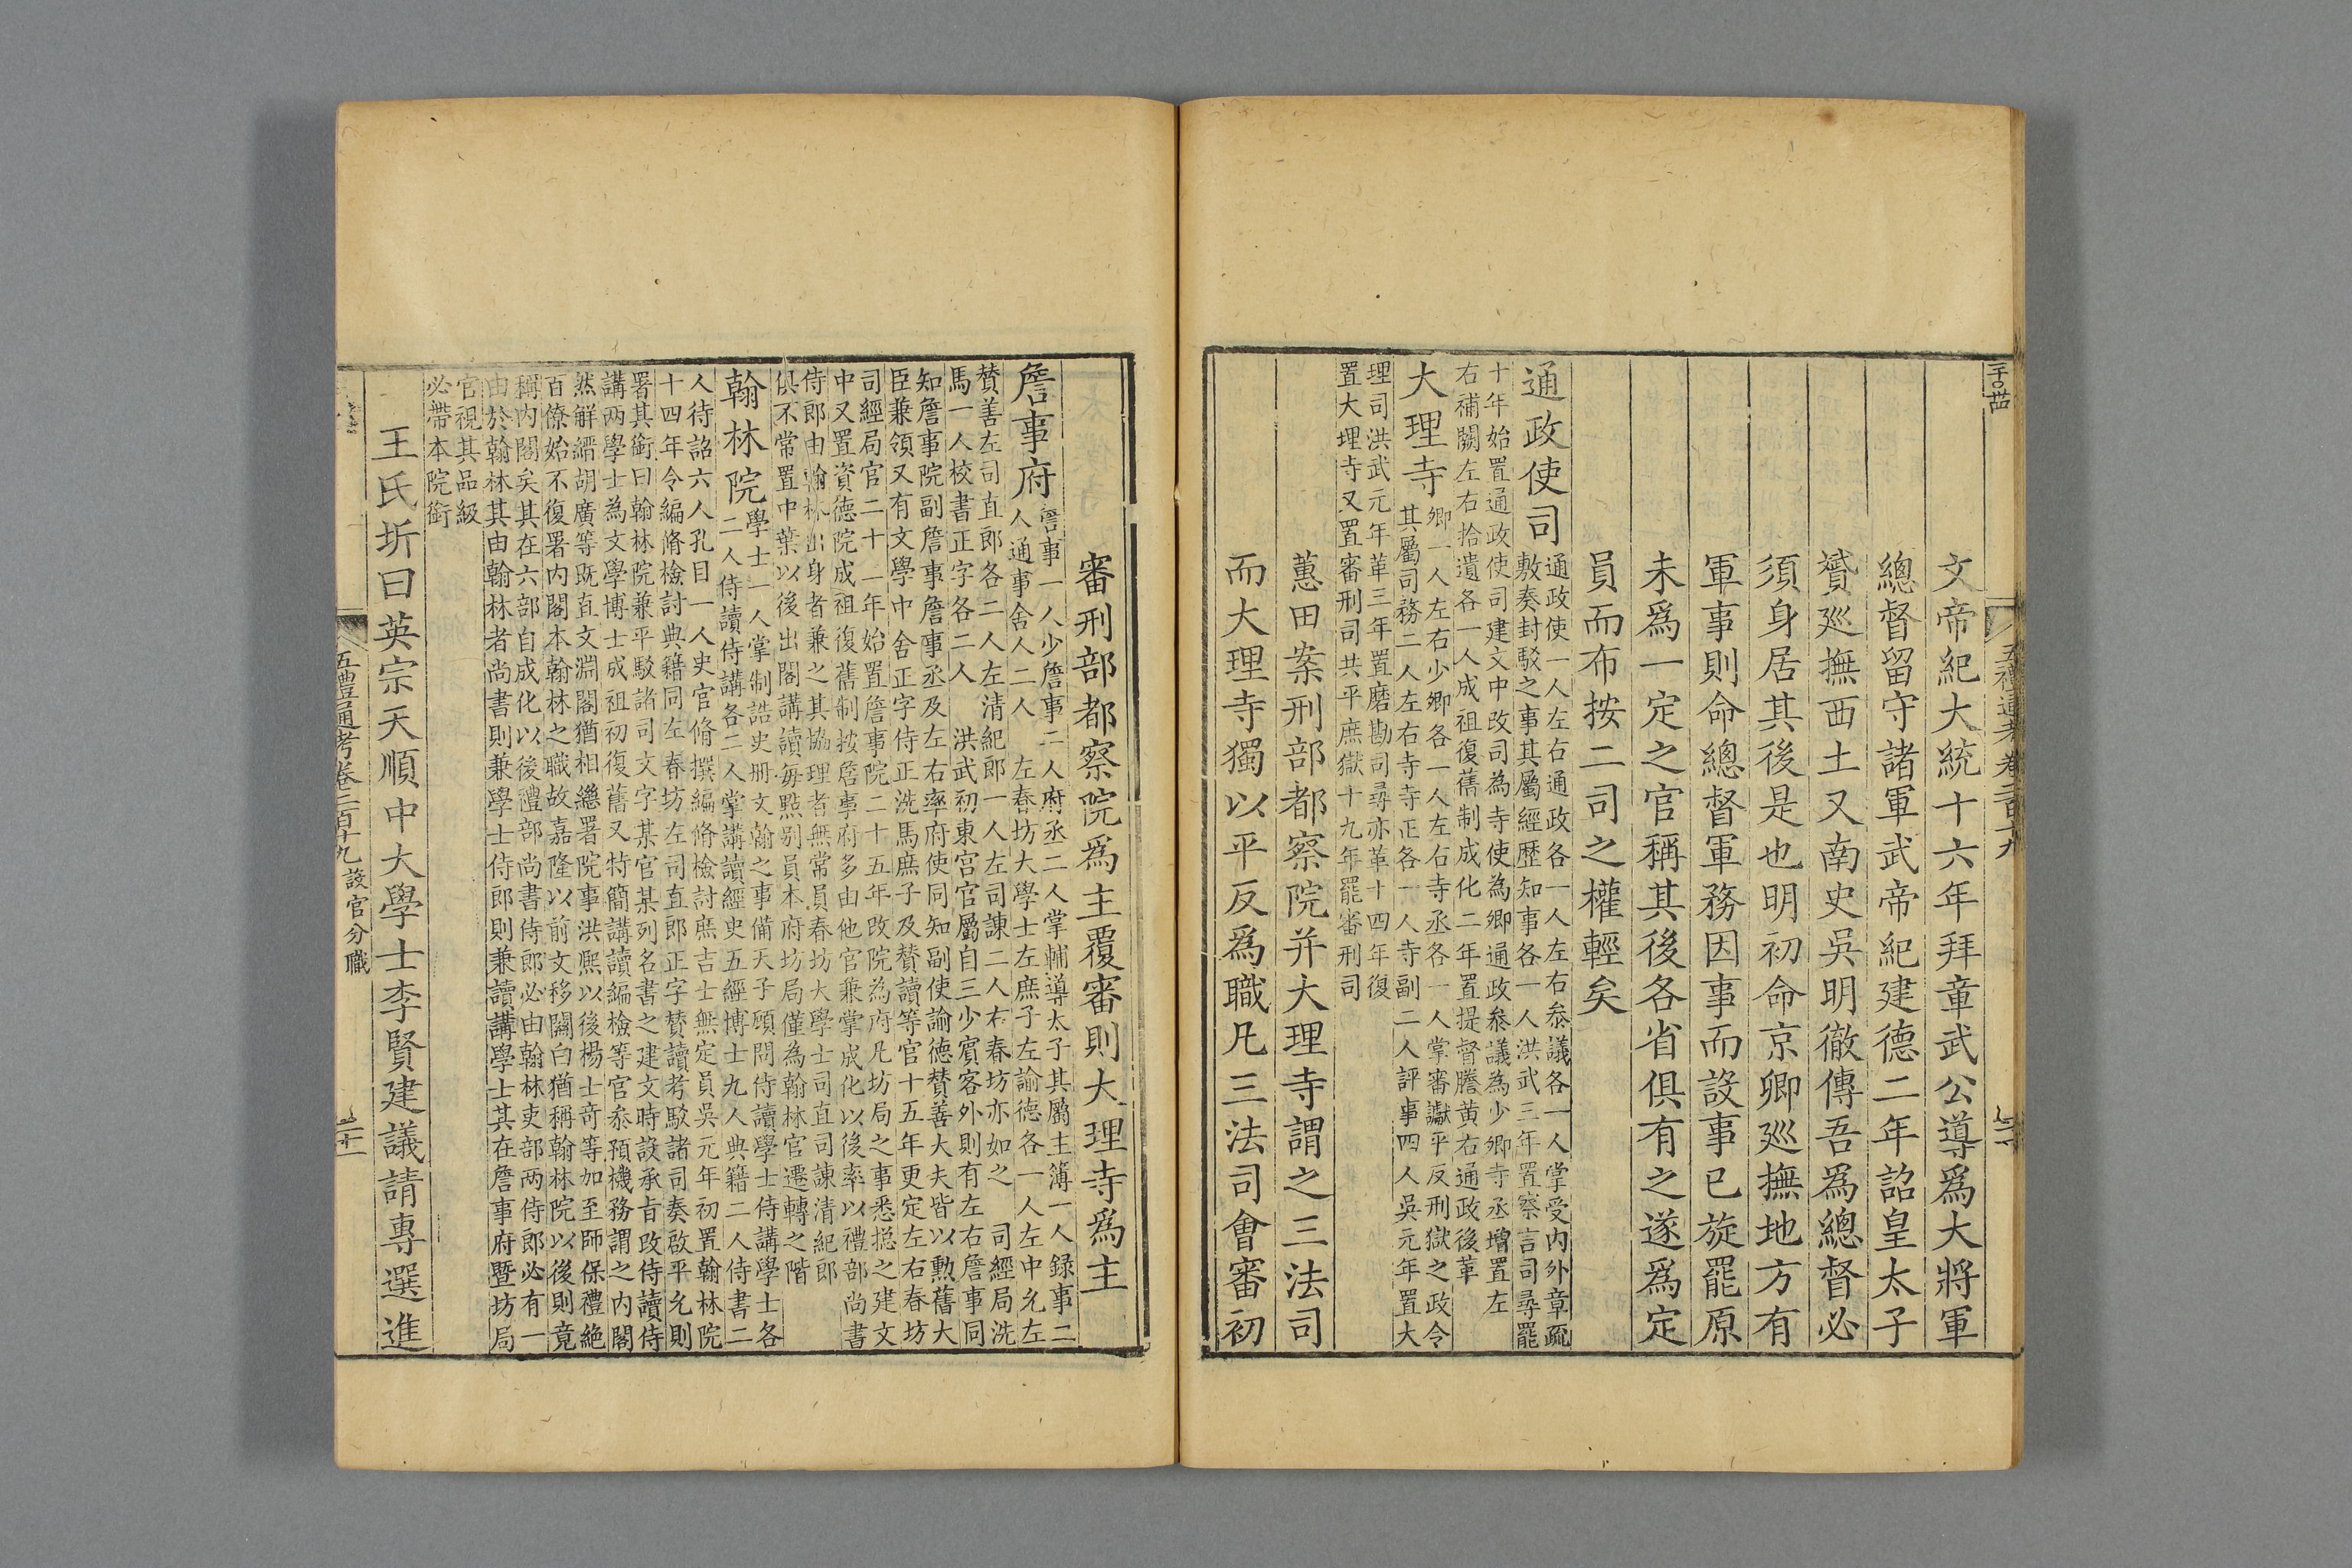 五禮通考卷二百十九
文帝紀大統十六年拜章武公導爲大將軍
總督留守諸軍武帝紀建德二年詔皇太子
贇巡撫西土又南史吳明徹傳吾爲總督必
須身居其後是也明初命京卿巡撫地方有
軍事則命總督軍務因事而設事已旋罷原
未爲一定之官稱其後各省俱有之遂爲定
員而布按二司之權輕矣
通政使司
通政使一人左右通政各一人左右叅議各一人掌受內外章疏
敷奏封駁之事其屬經歷知事各一人洪武三年置察言司尋罷
十年始置通政使司建文中改司為寺使為卿通政叅議為少卿寺丞增置左
右補闕左右拾遺各一人成祖復舊制成化二年置提督謄黃右通政後革
大理寺
卿一人左右少卿各一人左右寺丞各一人掌審讞平反刑獄之政令
其屬司務二人左右寺寺正各一人寺副二人評事四人吳元年置大
理司洪武元年革三年置磨勘司尋亦革十四年復
置大理寺又置審刑司共平庶獄十九年罷審刑司
蕙田案刑部都察院并大理寺謂之三法司
而大理寺獨以平反爲職凡三法司會審初
審刑部都察院爲主覆審則大理寺爲主
詹事府
詹事一人少詹事二人府丞二人掌輔導太子其屬主簿一人録事二
人通事舍人二人 左春坊大學士左庶子左諭德各一人左中允左
贊善左司直郎各二人左清紀郎一人左司諫二人右春坊亦如之 司經局洗
馬一人校書正字各二人 洪武初東宮官屬自三少賓客外則有左右詹事同
知詹事院副詹事詹事丞及左右率府使同知副使諭德贊善大夫皆以勳舊大
臣兼領又有文學中舍正字侍正洗馬庶子及贊讀等官十五年更定左右春坊
司經局官二十一年始置詹事院二十五年改院為府凡坊局之事悉搃之建文
中又置資德院成祖復舊制按詹事府多由他官兼掌成化以後率以禮部尚書
侍郎由翰林出身者兼之其協理者無常員春坊大學士司直司諫清紀郎
俱不常置中葉以後出閣講讀每點别員本府坊局僅為翰林官遷轉之階
翰林院
學士一人掌制誥史册文翰之事備天子顧問侍讀學士侍講學士各
二人侍讀侍講各二人掌講讀經史五經博士九人典籍二人侍書二
人待詔六人孔目一人史官脩撰編脩檢討庶吉士無定員吳元年初置翰林院
十四年令編脩檢討典籍同左春坊左司直郎正字贊讀考駁諸司奏啟平允則
署其銜曰翰林院兼平駁諸司文字某官某列名書之建文時設承旨改侍讀侍
講兩學士為文學博士成祖初復舊又特簡講讀編檢等官叅預機務謂之內閣
然解縉胡廣等既直文淵閣猶相繼署院事洪熙以後楊士奇等加至師保禮絶
百僚始不復署內閣本翰林之職故嘉隆以前文移關白猶稱翰林院以後則竟
稱內閣矣其在六部自成化以後禮部尚書侍郎必由翰林吏部兩侍郎必有一
由於翰林其由翰林者尚書則兼學士侍郎則兼讀講學士其在詹事府暨坊局
官視其品級
必帶本院銜
王氏圻曰英宗天順中大學士李賢建議請專選進
五禮通考卷二百十九 設官分職
二十一